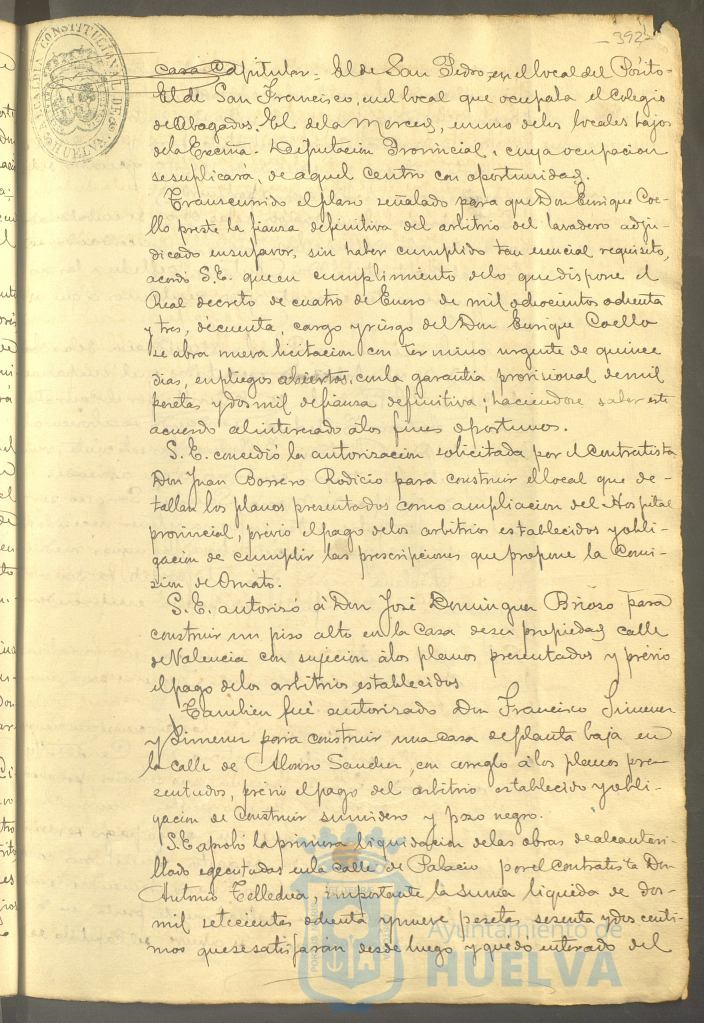 392
ALCALDIA CONSTITUCIONAL DE HUELVA
casa Capitular = El de San Pedro, en el local del Pósito-
El de San Francisco, en el local que ocupaba el Colegio
de Abogados. El de la Merced, en uno de los locales bajos
de la Excma. Diputacion Provincial, cuya ocupacion
se suplicará, de aquel Centro con oportunidad.
Transcurrido el plazo señalado para que Don Enrique Coe-
llo preste la fianza definitiva del arbitrio del lavadero adju-
dicado en su favor, sin haber cumplido tan esencial requisito,
acordó S.E. que en cumplimiento de lo que dispone el
Real decreto de cuatro de Enero de mil ochocientos ochenta
y tres, de cuenta, cargo y riesgo del Don Enrique Coello
se abra nueva licitacion con termino urgente de quince
dias, en pliegos abiertos, con la garantia provisional de mil
pesetas y dos mil de fianza definitiva; haciendose saber este
acuerdo al interesado á los fines oportunos.
S. E. concedió la autorizacion solicitada por el contratista
Don Juan Borrero Rodicio para construir el local que de-
tallan los planos presentados como ampliacion del Hospital
provincial, prévio el pago de los arbitrios establecidos y obli-
gacion de cumplir las prescripciones que propone la Comi-
sion de Ornáto.
S. E. autorizó á Don José Dominguez Brioso para
construir un piso alto en la casa de su propiedad calle
de Valencia con sujecion á los planos presentados y prévio
el pago de los arbitrios establecidos
Tambien fué autorizado Don Francisco Jimenez
y Jimenez para construir una casa de planta baja en
la calle de Alonso Sanchez, con arreglo á los planos pre-
sentados, prévio el pago del arbitrio establecido y obli-
gacion de construir sumidero y pozo negro.
S.E. aprobó la primera liquidacion de las obras de alcantari-
llado ejecutadas en la calle de Palacio por el contratista Don
Antonio, importante la suma líquida de dos-
mil setecientas ochenta y nueve pesetas sesenta y dos centi-
mos que se satisfarán desde luego y quedó enterado del
Ayuntamiento de
HUELVA